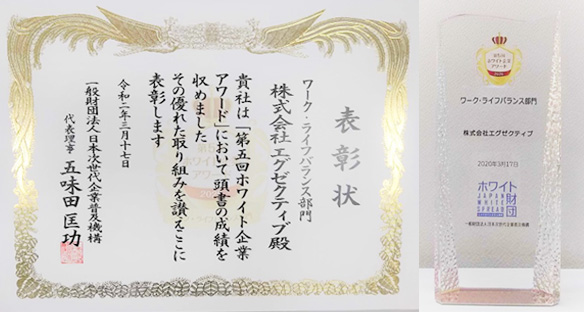 表彰状
ワーク・ライフバランス部門
株式会社エグゼクティブ殿
貴社は「第五回ホワイト企業
アワード」において頭書の成績を
収めました
その優れた取り組みを讃えここに
表彰します
令和二年三月十七日
一般財団法人日本次世代企業普及機構
代表理事 五味田匡功
ホワイト企業
アワード
2020
ワーク・ライフバランス部門
株式会社エグゼクティブ
2020年3月17日
ホワイト
財団
JAPAN
WHITE
SPREAD
一般財団法人日本次世代企業普及機構